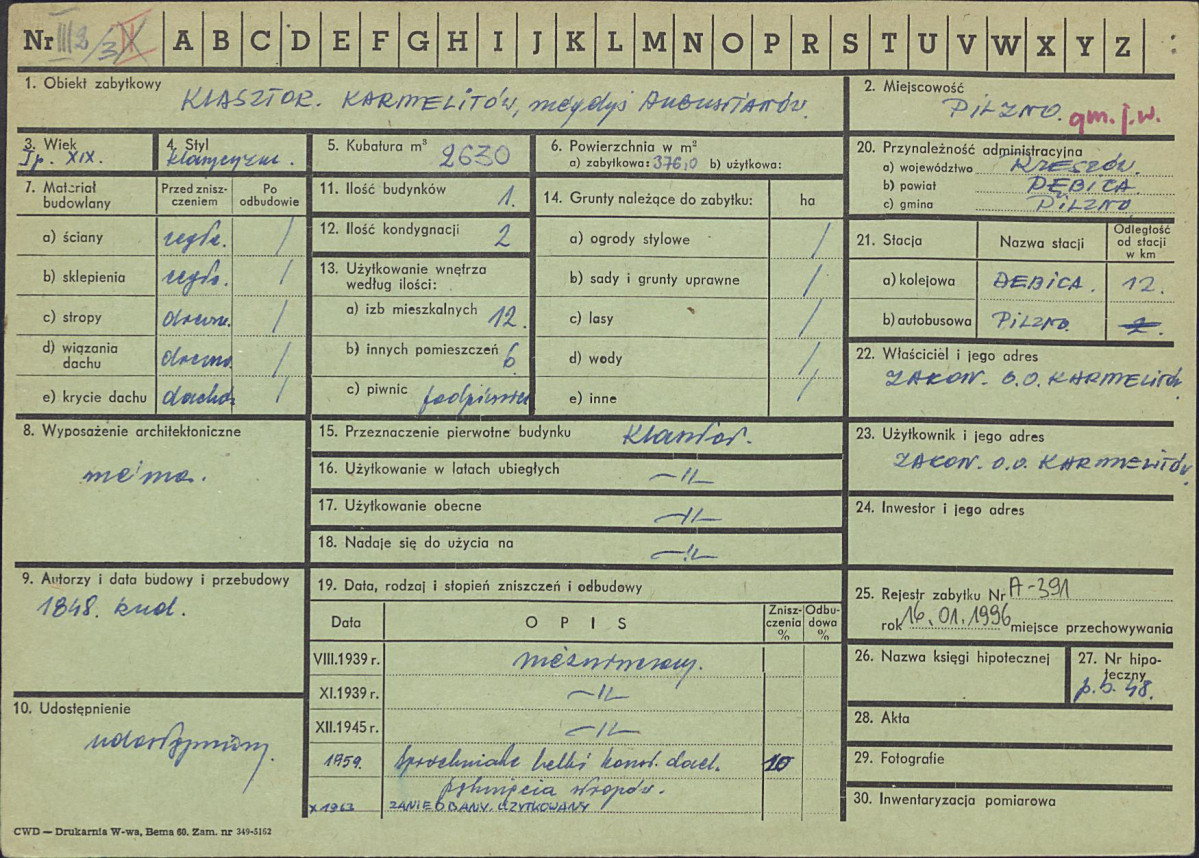 Nr III 2/3 A B C D E F G H I J K L M N O P R S T U V W X Y Z
1. Obiekt zabytkowy
KLASZTOR. KARMELITÓW, niegdyś AUGUSTIANÓW.
2. Miejscowość
PILZNO. gm. j.w.
3. Wiek
I p. XIX.
4. Styl
klasycyzm.
5. Kubatura m³ 2630
6. Powierzchnia w m²
a) zabytkowa: 376,0 b) użytkowa:
20. Przynależność administracyjna
a) województwo RZESZÓW.
b) powiat DĘBICA
c) gmina PILZNO
7. Materiał budowlany
Przed zniszczeniem
Po odbudowie
a) ściany cegła. /
b) sklepienia cegła. /
c) stropy drewn. /
d) wiązania dachu drewno. /
e) krycie dachu dachów /
11. Ilość budynków 1.
12. Ilość kondygnacji 2
13. Użytkowanie wnętrza według ilości:
a) izb mieszkalnych 12.
b) innych pomieszczeń 6
c) piwnic
14. Grunty należące do zabytku: ha
a) ogrody stylowe /
b) sady i grunty uprawne /
c) lasy /
d) wody /
e) inne /
21. Stacja
Nazwa stacji
Odległość od stacji w km
a) kolejowa DEBICA. 12.
b) autobusowa PILZNO.
22. Właściciel i jego adres
ZAKON. O.O. KARMELITÓW
8. Wyposażenie architektoniczne
niema.
15. Przeznaczenie pierwotne budynku Klasztor.
16. Użytkowanie w latach ubiegłych —"—
17. Użytkowanie obecne —"—
18. Nadaje się do użycia na —"—
23. Użytkownik i jego adres
ZAKON. O.O. KARMELITÓW
24. Inwestor i jego adres
9. Autorzy i data budowy i przebudowy
1848. bud.
19. Data, rodzaj i stopień zniszczeń i odbudowy
Data
OPIS
Zniszczenia %
Odbudowa %
VIII.1939 r. niezniszczony.
XI.1939 r. —"—
XII.1945 r. —"—
1959. Spróchniałe belki konst. dach. 10
pęknięcia stropów.
X 1963 ZANIEDBANY. UŻYTKOWANY
25. Rejestr zabytku Nr A-391
rok 16.01.1996 miejsce przechowywania
26. Nazwa księgi hipotecznej
27. Nr hipoteczny
p.b. 48.
10. Udostępnienie
udostępniony.
28. Akta
29. Fotografie
30. Inwentaryzacja pomiarowa
CWD — Drukarnia W-wa, Bema 60. Zam. nr 349-5162